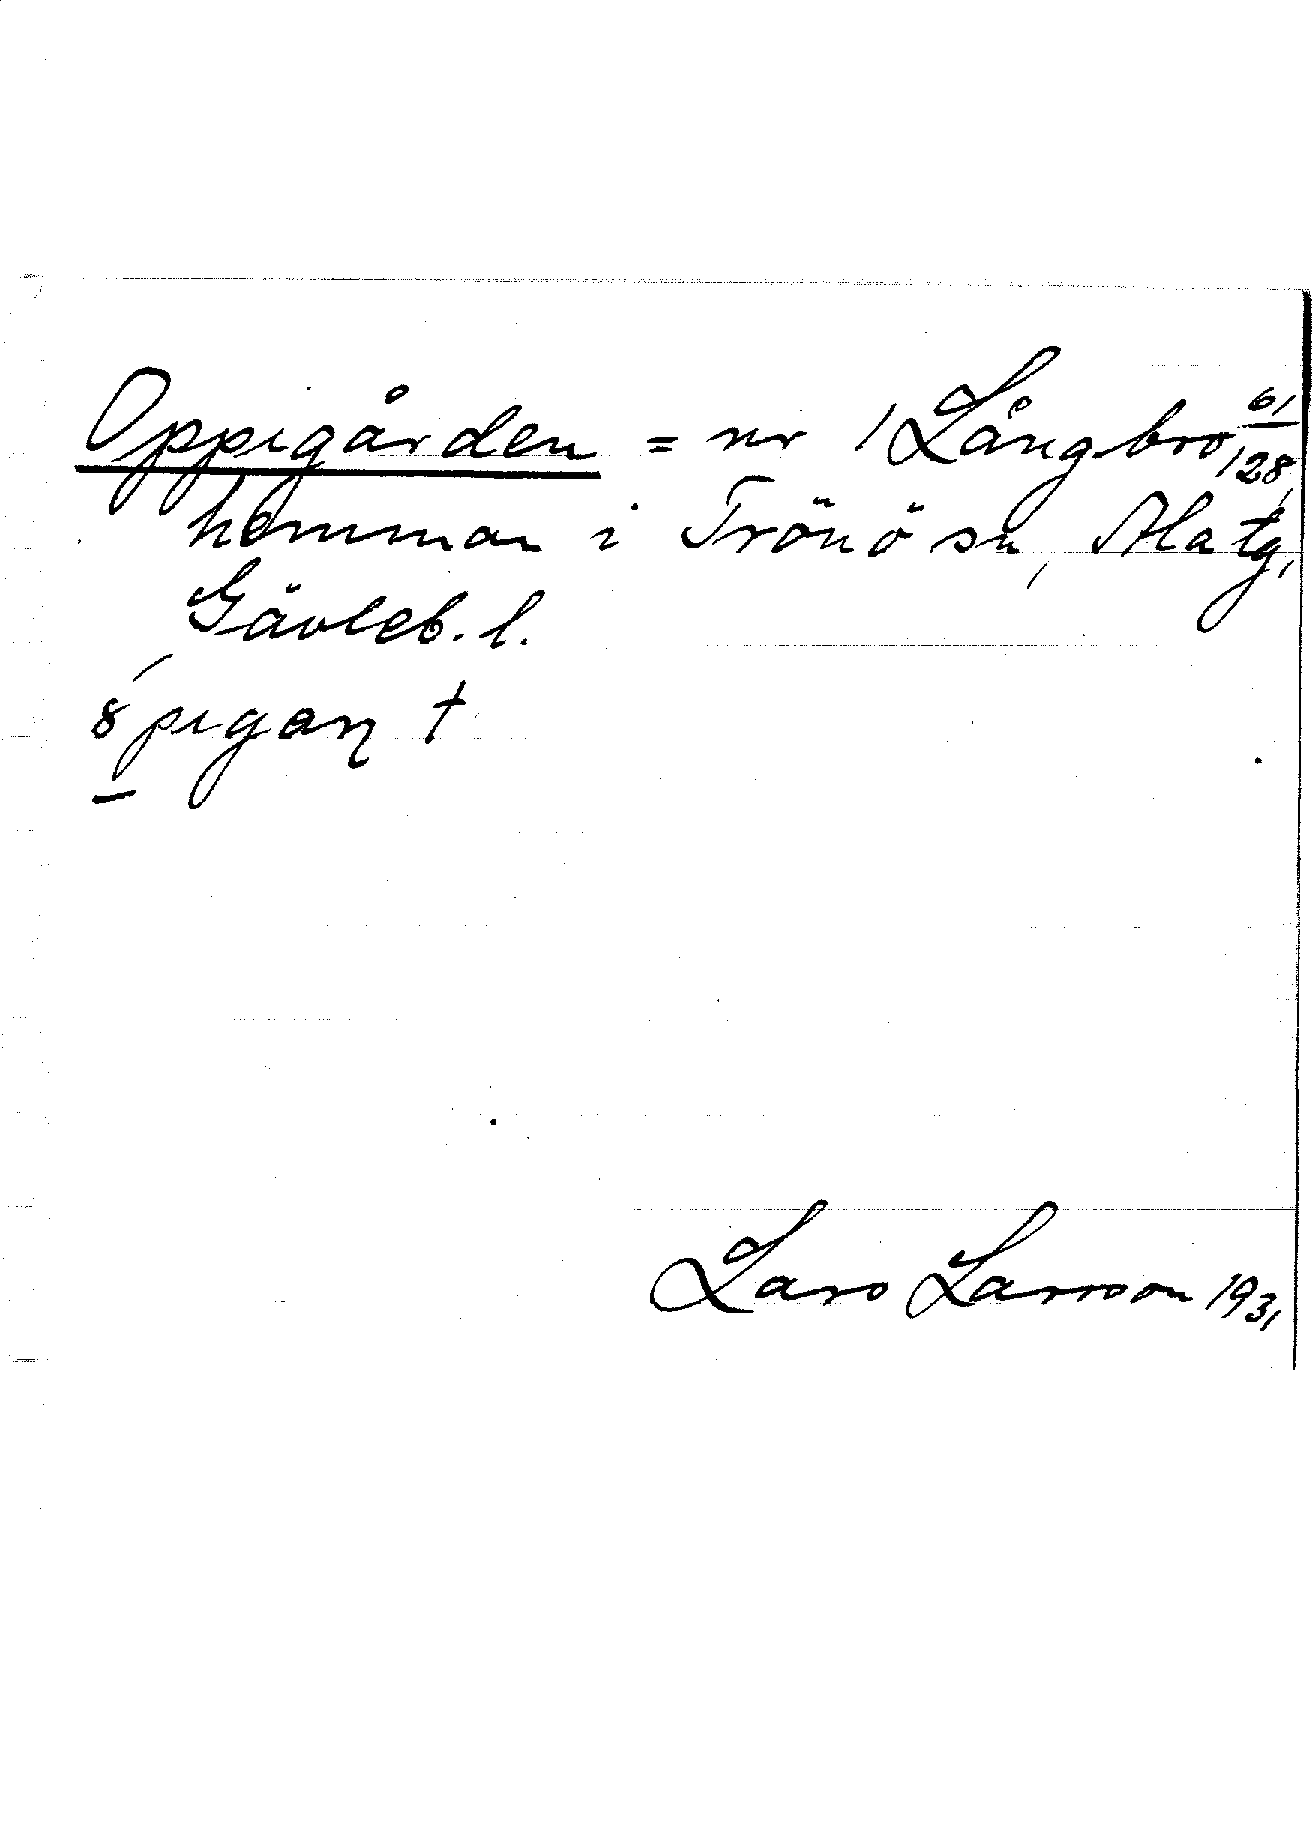 Oppigården = nr 1 Långbro 61/128,
hemman i Trönö sn, Ala tg,
Gävleb. l.
Lars Larsson 1931